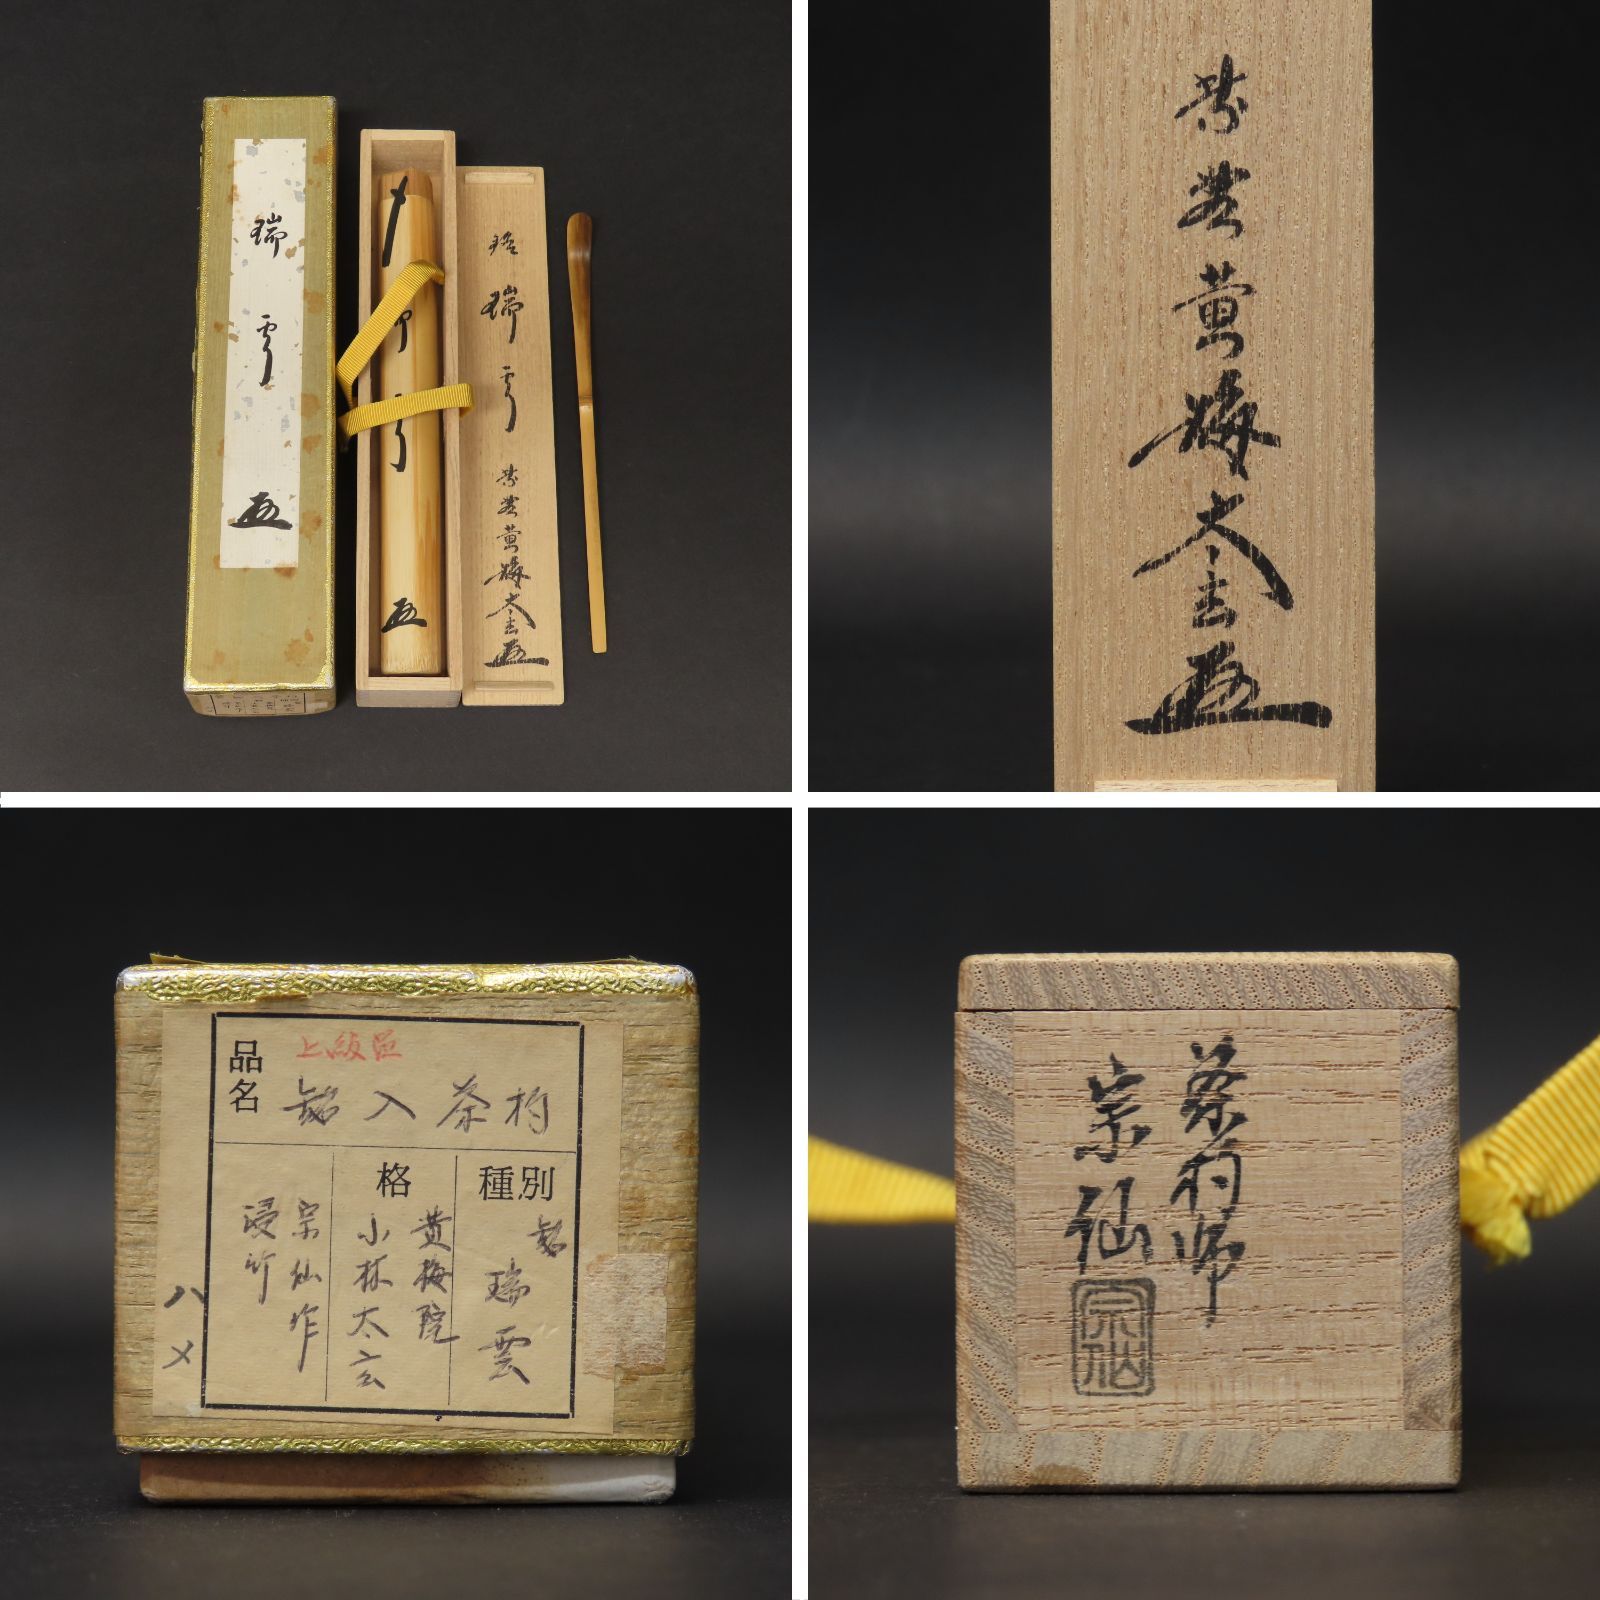 瑞雲
〆
瑞雲
銘
瑞雲
紫野黄梅太玄
紫野黄梅太玄
品名
上級品
銘入茶杓
種別
銘
瑞雲
格
黄梅院
小林太玄
宗仙作
浸竹
ハメ
茶杓師
宗仙
宗仙